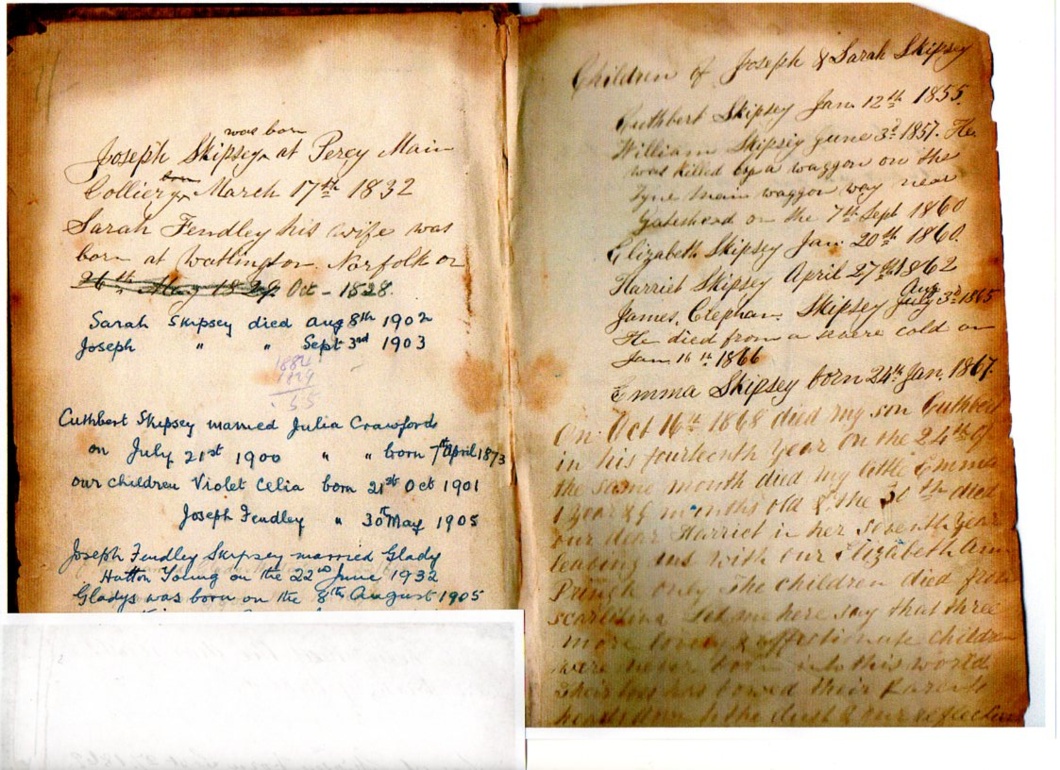 was born
Joseph Skipsey ^ at Percy Main
Colliery March 17th 1832
Sarah Fendley his wife was
born at Watlington Norfolk on
26th May 1829 Oct - 1828.
Sarah Skipsey died Aug 8th 1902
Joseph " " Sept 3rd 1903
1884
1829
55
Cuthbert Skipsey married Julia Crawford
on July 21st 1900 " " born 7th April 1873
our children Violet Celia born 21st Oct 1901
Joseph Fendley " 30th May 1905
Joseph Fendley Skipsey married Glady
Hutton Young on the 22nd June 1932
Gladys was born on the 8th August 1905
Children of Joseph & Sarah Skipsey
Cuthbert Skipsey Jan. 12th 1855.
William Skipsey June 3rd 1857. He
was killed by a waggon on the
Tyne Main waggon way near
Gateshead on the 7th Sept 1860
Elizabeth Skipsey Jan. 20th 1860.
Harriet Skipsey April 27th 1862
Aug
James, Clephan. Skipsey July 3rd 1865
He died from a severe cold on
Jan 16th 1866
Emma Skipsey born 24th Jan. 1867.
On Oct 16th 1868 died my son Cuthbert
in his fourteenth year on the 24th of
the same month died my little Emma
1 year & 9 months old & the 30th died
our dear Harriet in her seventh year
leaving us with our Elizabeth Ann
Pringle only The children died from
scarlatina Let me here say that three
more lovely & affectionate children
were never born into this world
Their loss has bowed their Parents
heads down to the dust & our